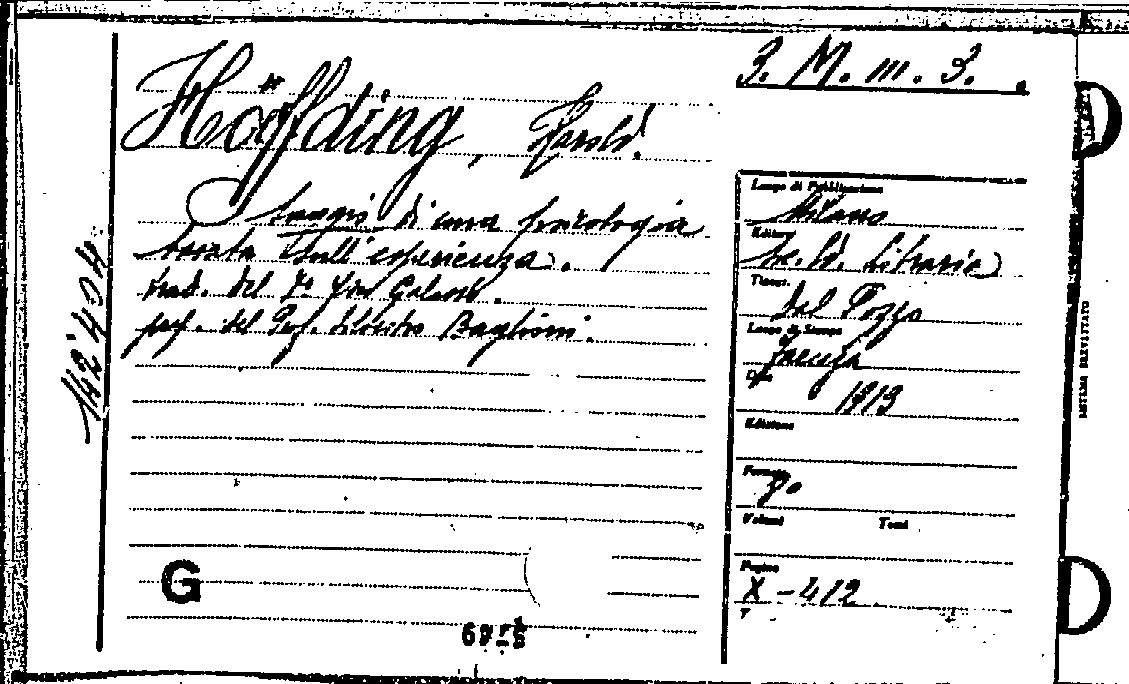 3. M. m. 3.
Höffding, Harold.
di una psicologia
basata sull'esperienza.
trad. del Dr
pref. del Prof. Silvestro Baglioni.
Luogo di Pubblicazione
Milano
Editore
Soc. Ed. Libraria
Tipogr.
Dal Pozzo
Luogo di Stampa
Faenza
Data
1913
Edizione
Formato
8°
Volumi Tomi
Pagine
X - 412
G
SISTEMA BREVETTATO